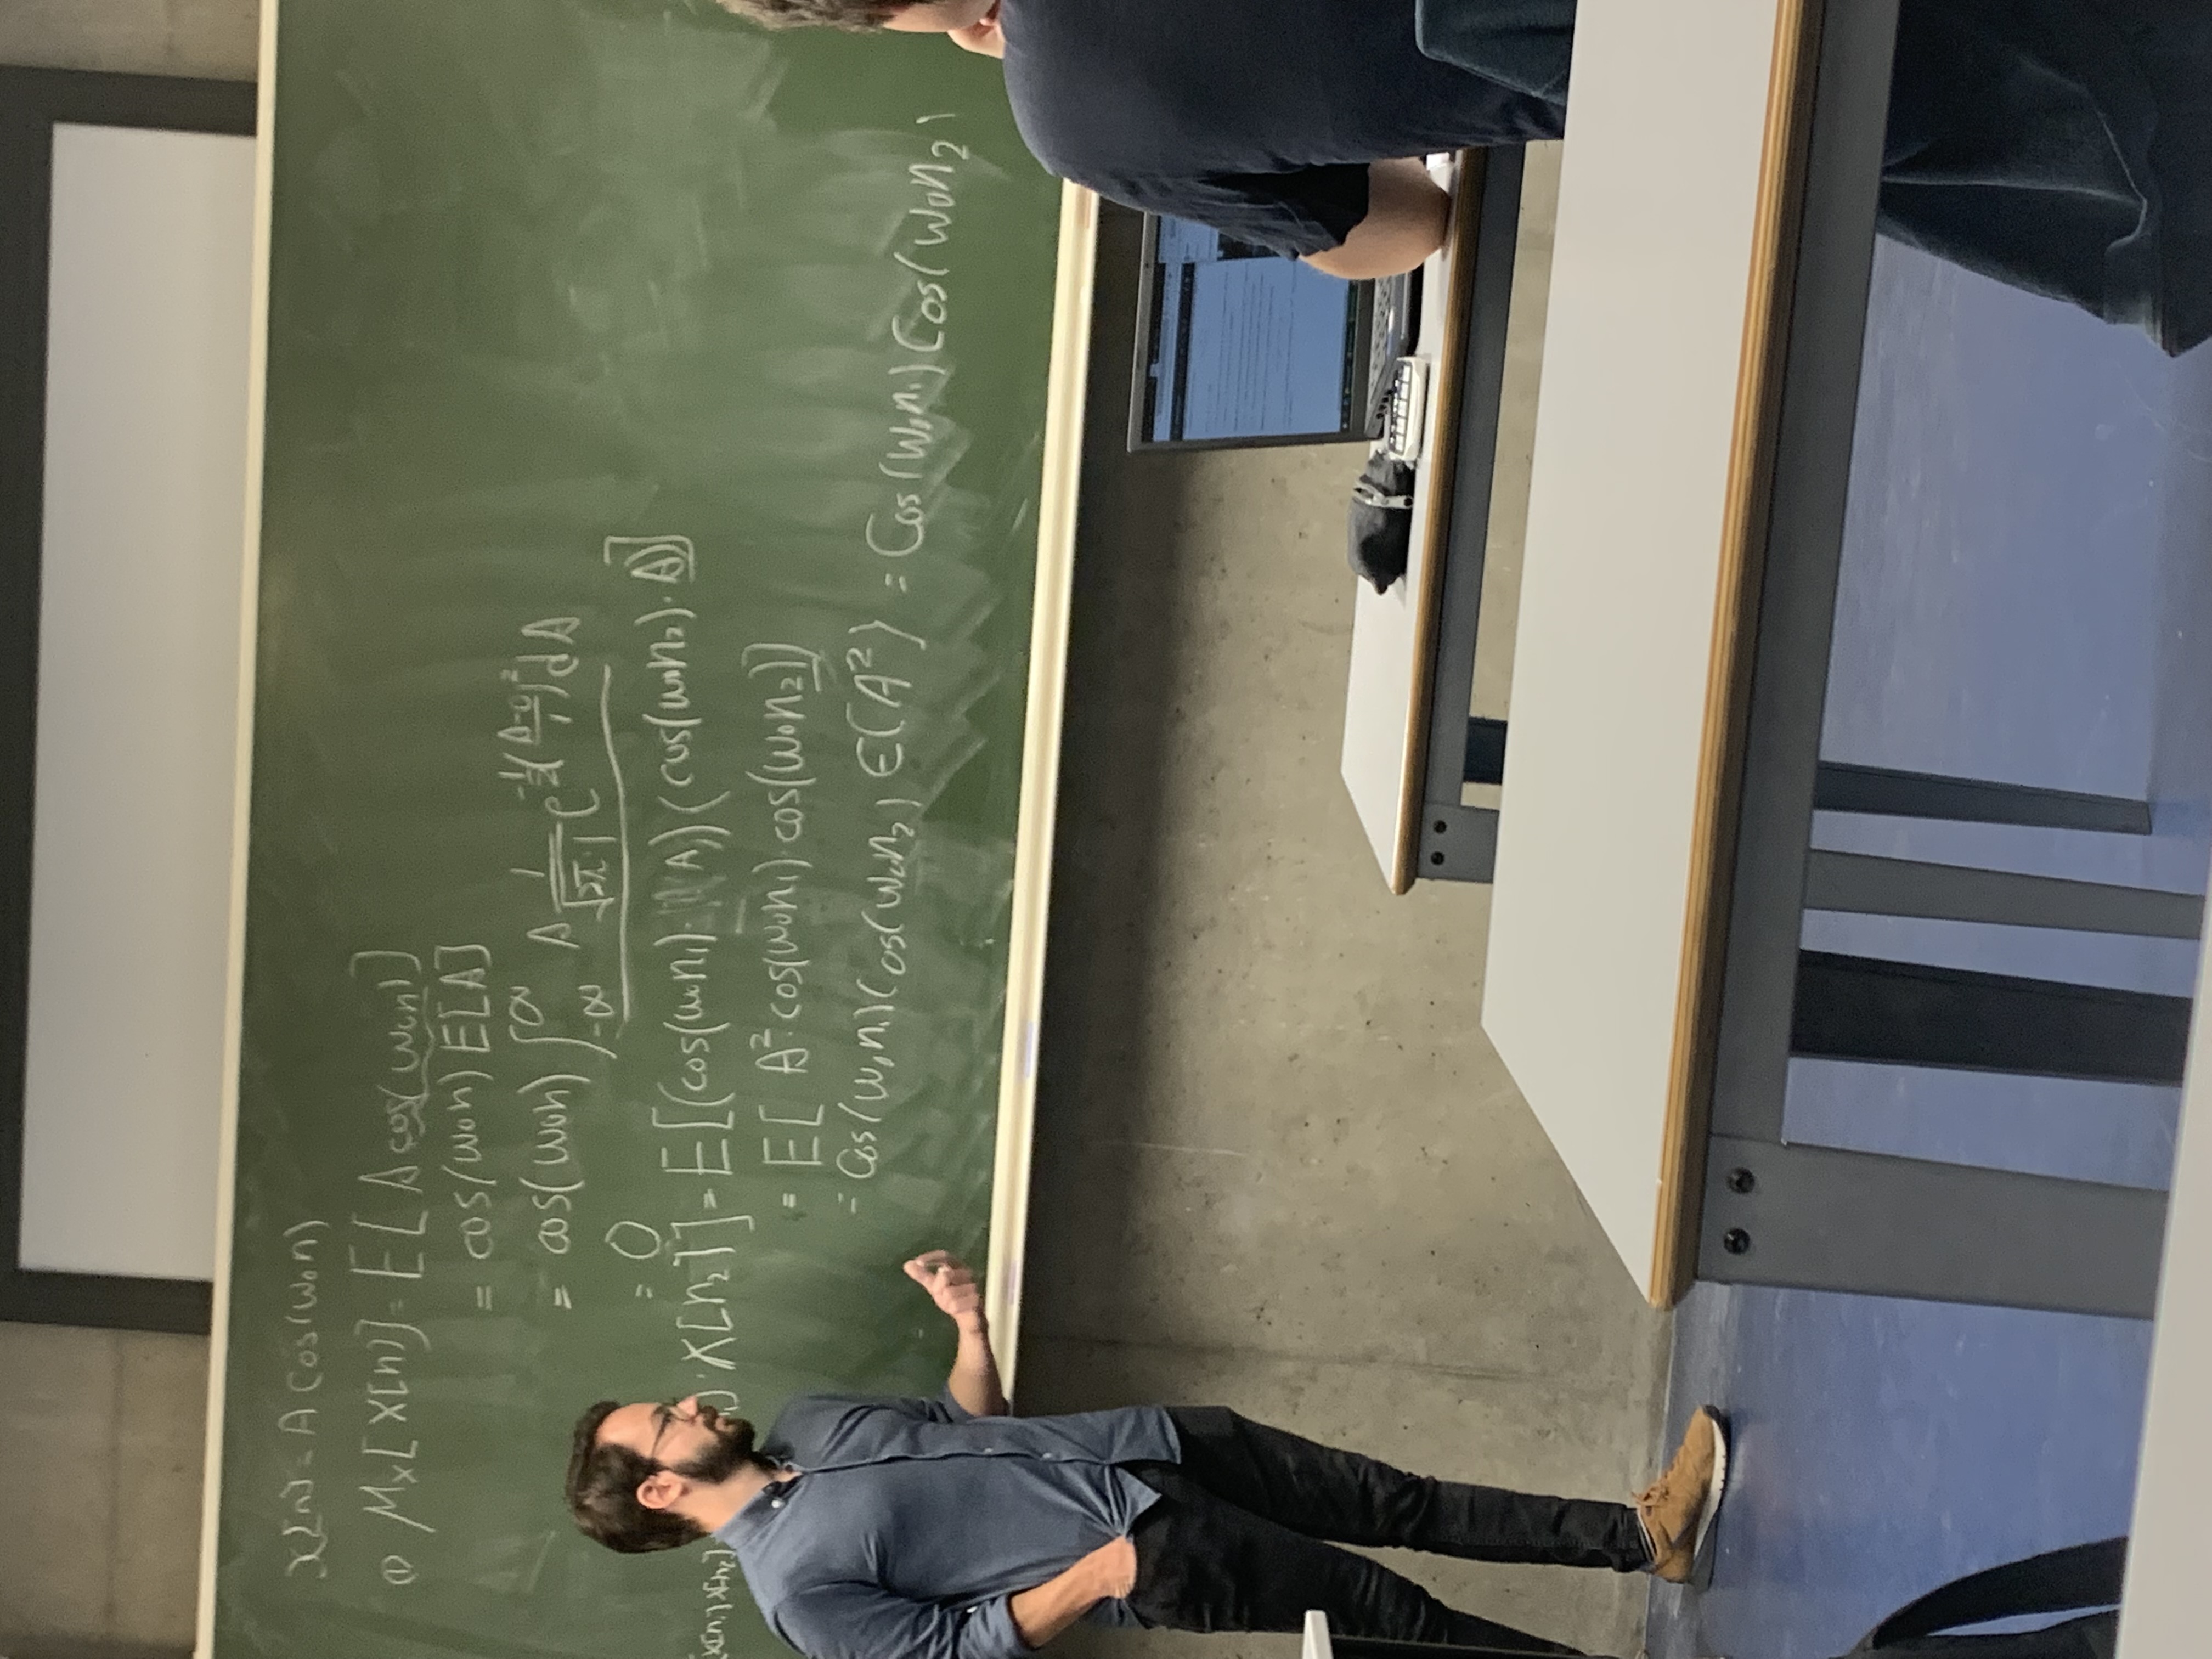 x[n] = A cos(ω₀n)
① μₓ[X[n]] = E[A cos(ω₀n)]
= cos(ω₀n) E[A]
= cos(ω₀n) ∫_{-∞}^{∞} A 1/(√2π·1) e^{-1/2((A-0)/1)²} dA
= 0
X[n₁] X[n₂] · X[n₂]] = E[(cos(ω₀n₁) · A)(cos(ω₀n₂) · A)]
= E[A² · cos(ω₀n₁) · cos(ω₀n₂)]
= Cos(ω₀n₁) Cos(ω₀n₂) E(A²) = Cos(ω₀n₁) Cos(ω₀n₂)